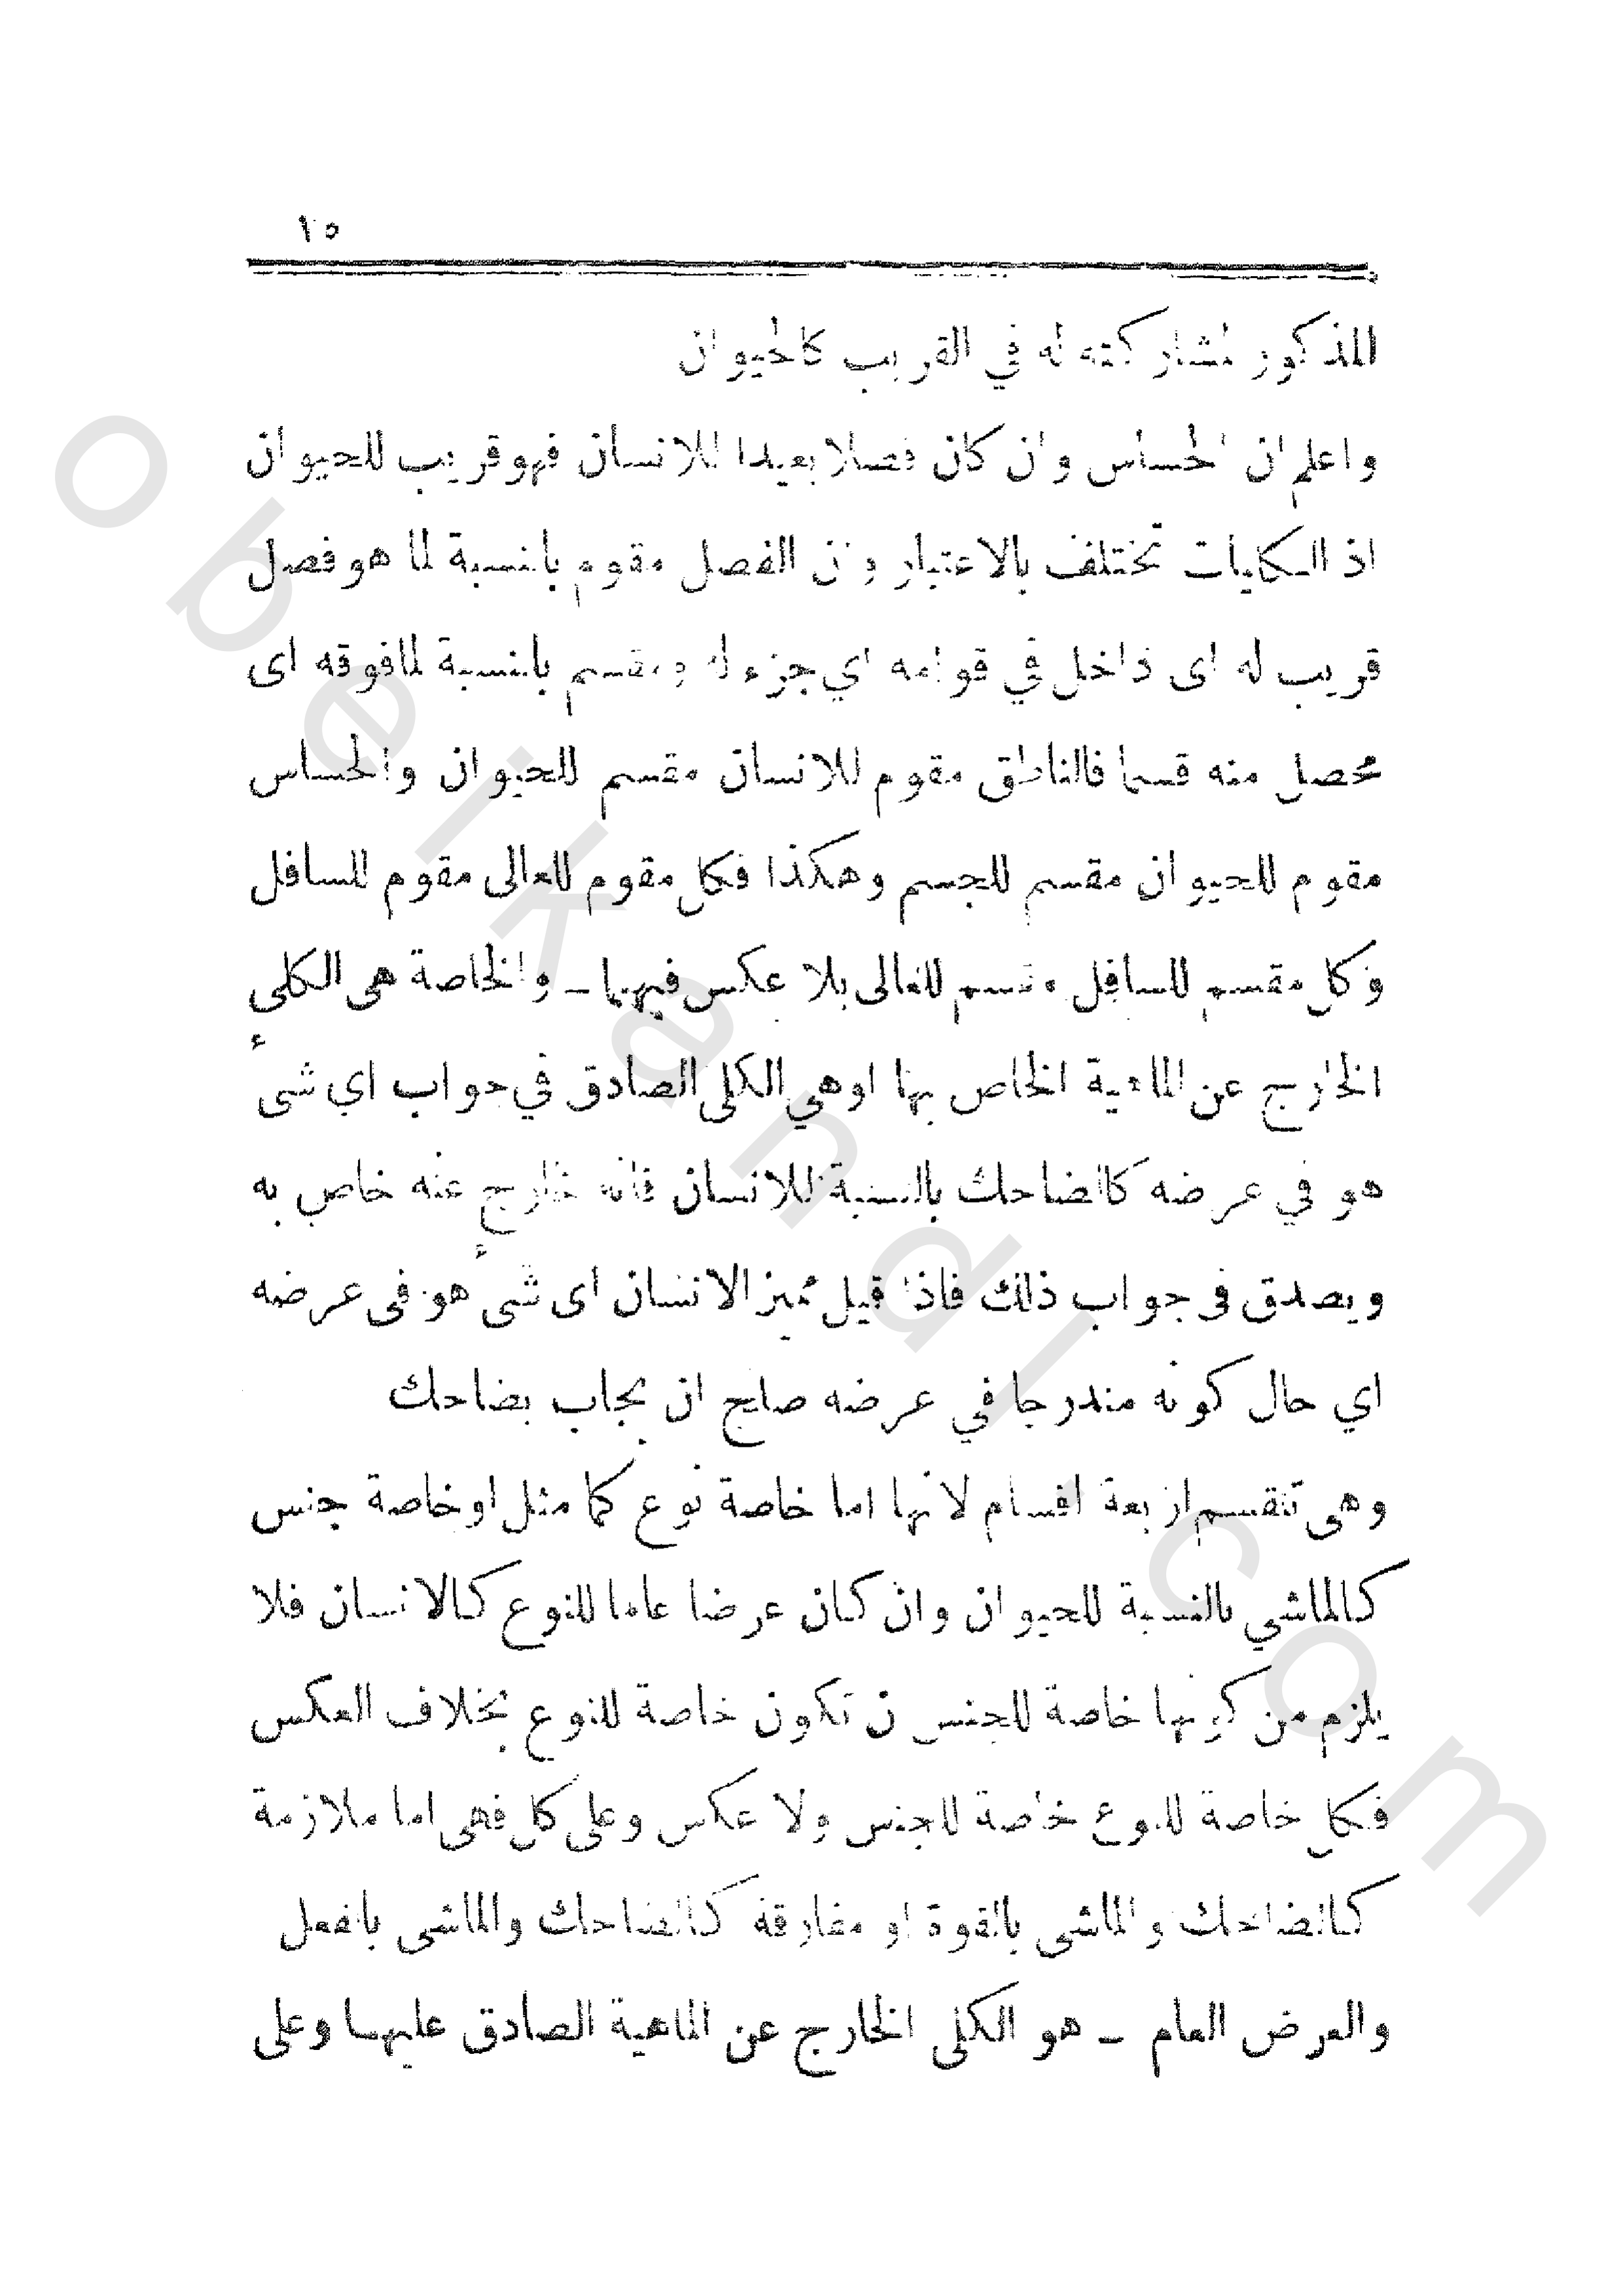 ١٥
المذكور لمشاركته له في القريب كالحيوان
واعلم ان الحساس وان كان فصلا بعيدا للانسان فهو قريب للحيوان
اذ الكليات تختلف بالاعتبار وان الفصل مقوم بالنسبة لما هو فصل
قريب له اى داخل في قوامه اي جزء له ومقسم بالنسبة لما فوقه اى
محصل منه قسما فالناطق مقوم للانسان مقسم للحيوان والحساس
مقوم للحيوان مقسم للجسم وهكذا فكل مقوم للعالى مقوم للسافل
وكل مقسم للسافل مقسم للعالى بلا عكس فيهما ـ والخاصة هى الكلى
الخارج عن الماهية الخاص بها او هي الكلى الصادق في جواب اي شىء
هو في عرضه كالضاحك بالنسبة للانسان فانه خارج عنه خاص به
ويصدق فى جواب ذلك فاذا قيل مميز الانسان اى شىء هو فى عرضه
اي حال كونه مندرجا في عرضه صلح ان يجاب بضاحك
وهى تنقسم اربعة اقسام لانها اما خاصة نوع كما مثل او خاصة جنس
كالماشي بالنسبة للحيوان وان كان عرضا عاما للنوع كالانسان فلا
يلزم من كونها خاصة للجنس ن تكون خاصة للنوع بخلاف العكس
فكل خاصة للنوع خاصة للجنس ولا عكس وعلى كل فهى اما ملازمة
كالضاحك والماشى بالقوة او مفارقة كالضاحك والماشى بالفعل
والعرض العام ـ هو الكلى الخارج عن الماهية الصادق عليها وعلى
obeikandl.com